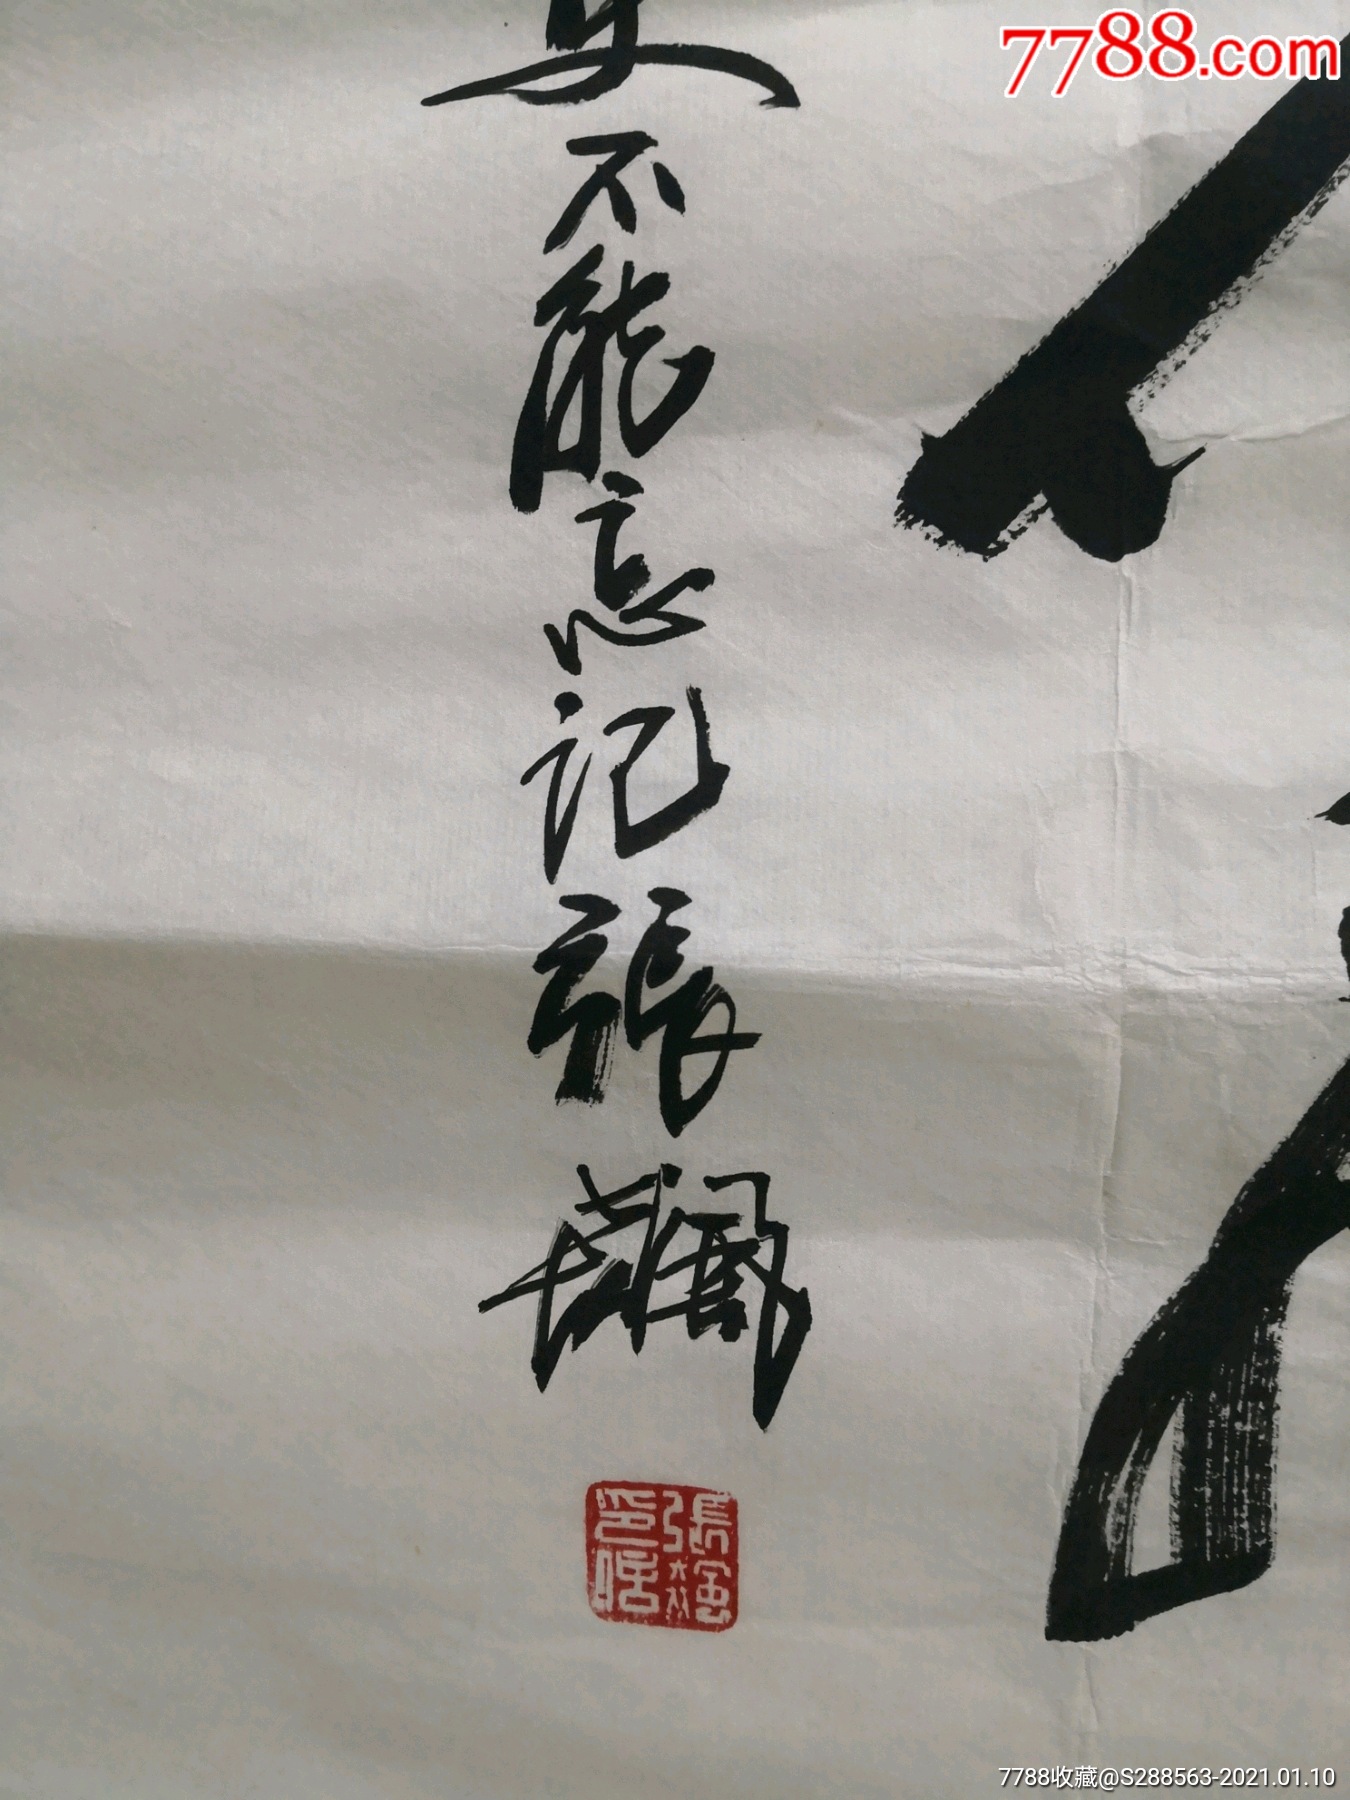 7788.com
不能忘记張飆
張飆印信
7788收藏@S288563-2021.01.10